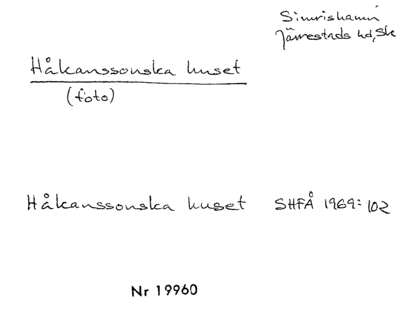 Simrishamn
Järrestads hd, Sk
Håkanssonska huset
(foto)
Håkanssonska huset SHFÅ 1969:102
Nr 19960